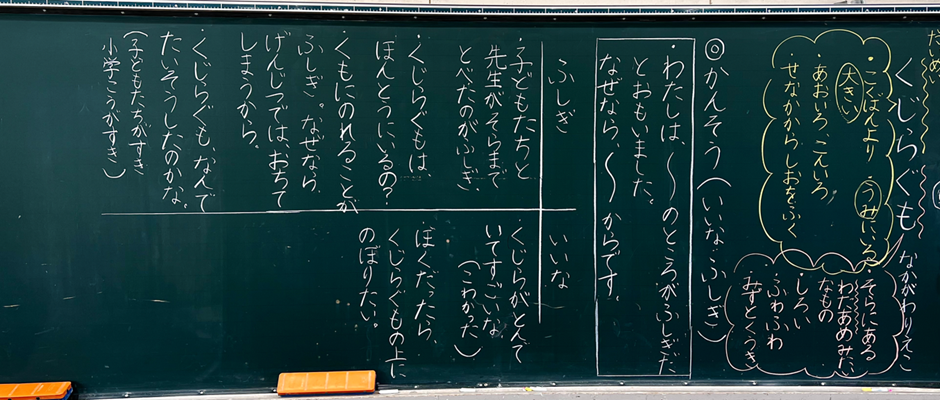 だいめ
くじらぐも
なかがわりえこ
・こくばんより
大きい
うみにいる
あおいろ、こんいろ
せなかから しおをふく
・そらにある
わたあめみたい
なもの
しろい
ふわふわ
みずとくうき
◎かんそう(いいな、ふしぎ)
・わたしは、〜のところがふしぎだ
とおもいました。
なぜなら、〜からです。
ふしぎ
・子どもたちと
先生がそらまで
とべたのがふしぎ、
・くじらぐもは
ほんとうにいるの?
・くもにのれることが
ふしぎ。なぜなら
げんじつでは、おちて
しまうから。
・くじらぐも、なんで
たいそうしたのかな。
(子どもたちがすき
小学こうがすき)
いいな
くじらがとんで
いてすごいな
(こわかった)
ぼくだったら、
くじらぐもの上に
のぼりたい。